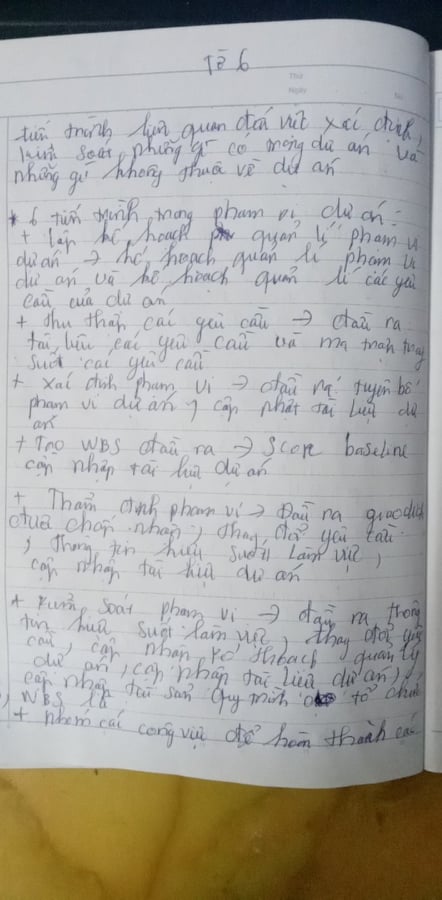 Tổ 6
Thứ
Ngày
Số
tiến trình liên quan đến việc xác định,
kiểm soát những gì có trong dự án và
những gì không thuộc về dự án
* 6 tiến trình trong phạm vi dự án:
+ lập kế hoạch quản lí phạm vi
dự án → kế hoạch quản lí phạm vi
dự án và kế hoạch quản lí các yêu
cầu của dự án
+ thu thập các yêu cầu → đầu ra
tài liệu các yêu cầu và ma trận truy
suất các yêu cầu
+ xác định phạm vi → đầu ra: tuyên bố
phạm vi dự án, cập nhật tài liệu dự
án
+ Tạo WBS đầu ra → Scope baseline
cập nhập tài liệu dự án
+ Thẩm định phạm vi → Đầu ra giao dịch
được chấp nhận, thay đổi yêu cầu
, thông tin hiệu suất làm việc,
cập nhập tài liệu dự án
+ kiểm soát phạm vi → đầu ra thông
tin hiệu suất làm việc, thay đổi yêu
cầu, cập nhập kế hoạch quản lý
dự án, cập nhập tài liệu dự án,
cập nhập tài sản quy trình tổ chức
, WBS là
+ nhóm các công việc để hoàn thành các